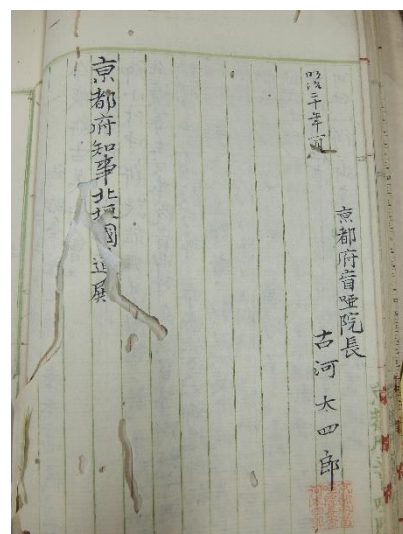 明治二十年一月
京都府盲唖院長
古河太四郎
京都府知事北垣國道展